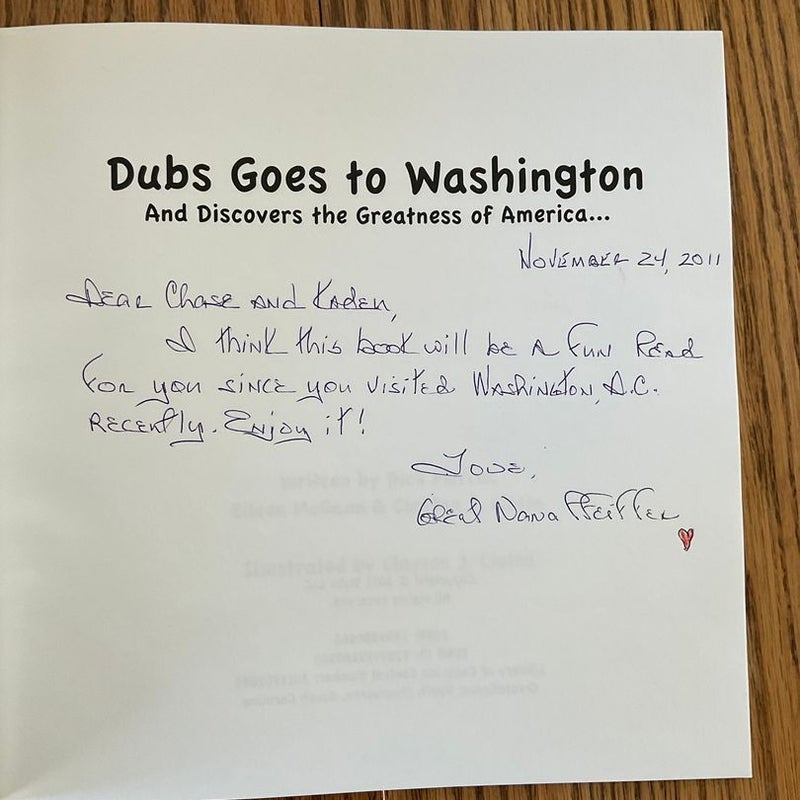 Dubs Goes to Washington
And Discovers the Greatness of America...
November 24, 2011
Dear Chase and Kaden,
I think this book will be a fun read
for you since you visited Washington, D.C.
recently. Enjoy it!
Love,
Great Nana Pfeiffer